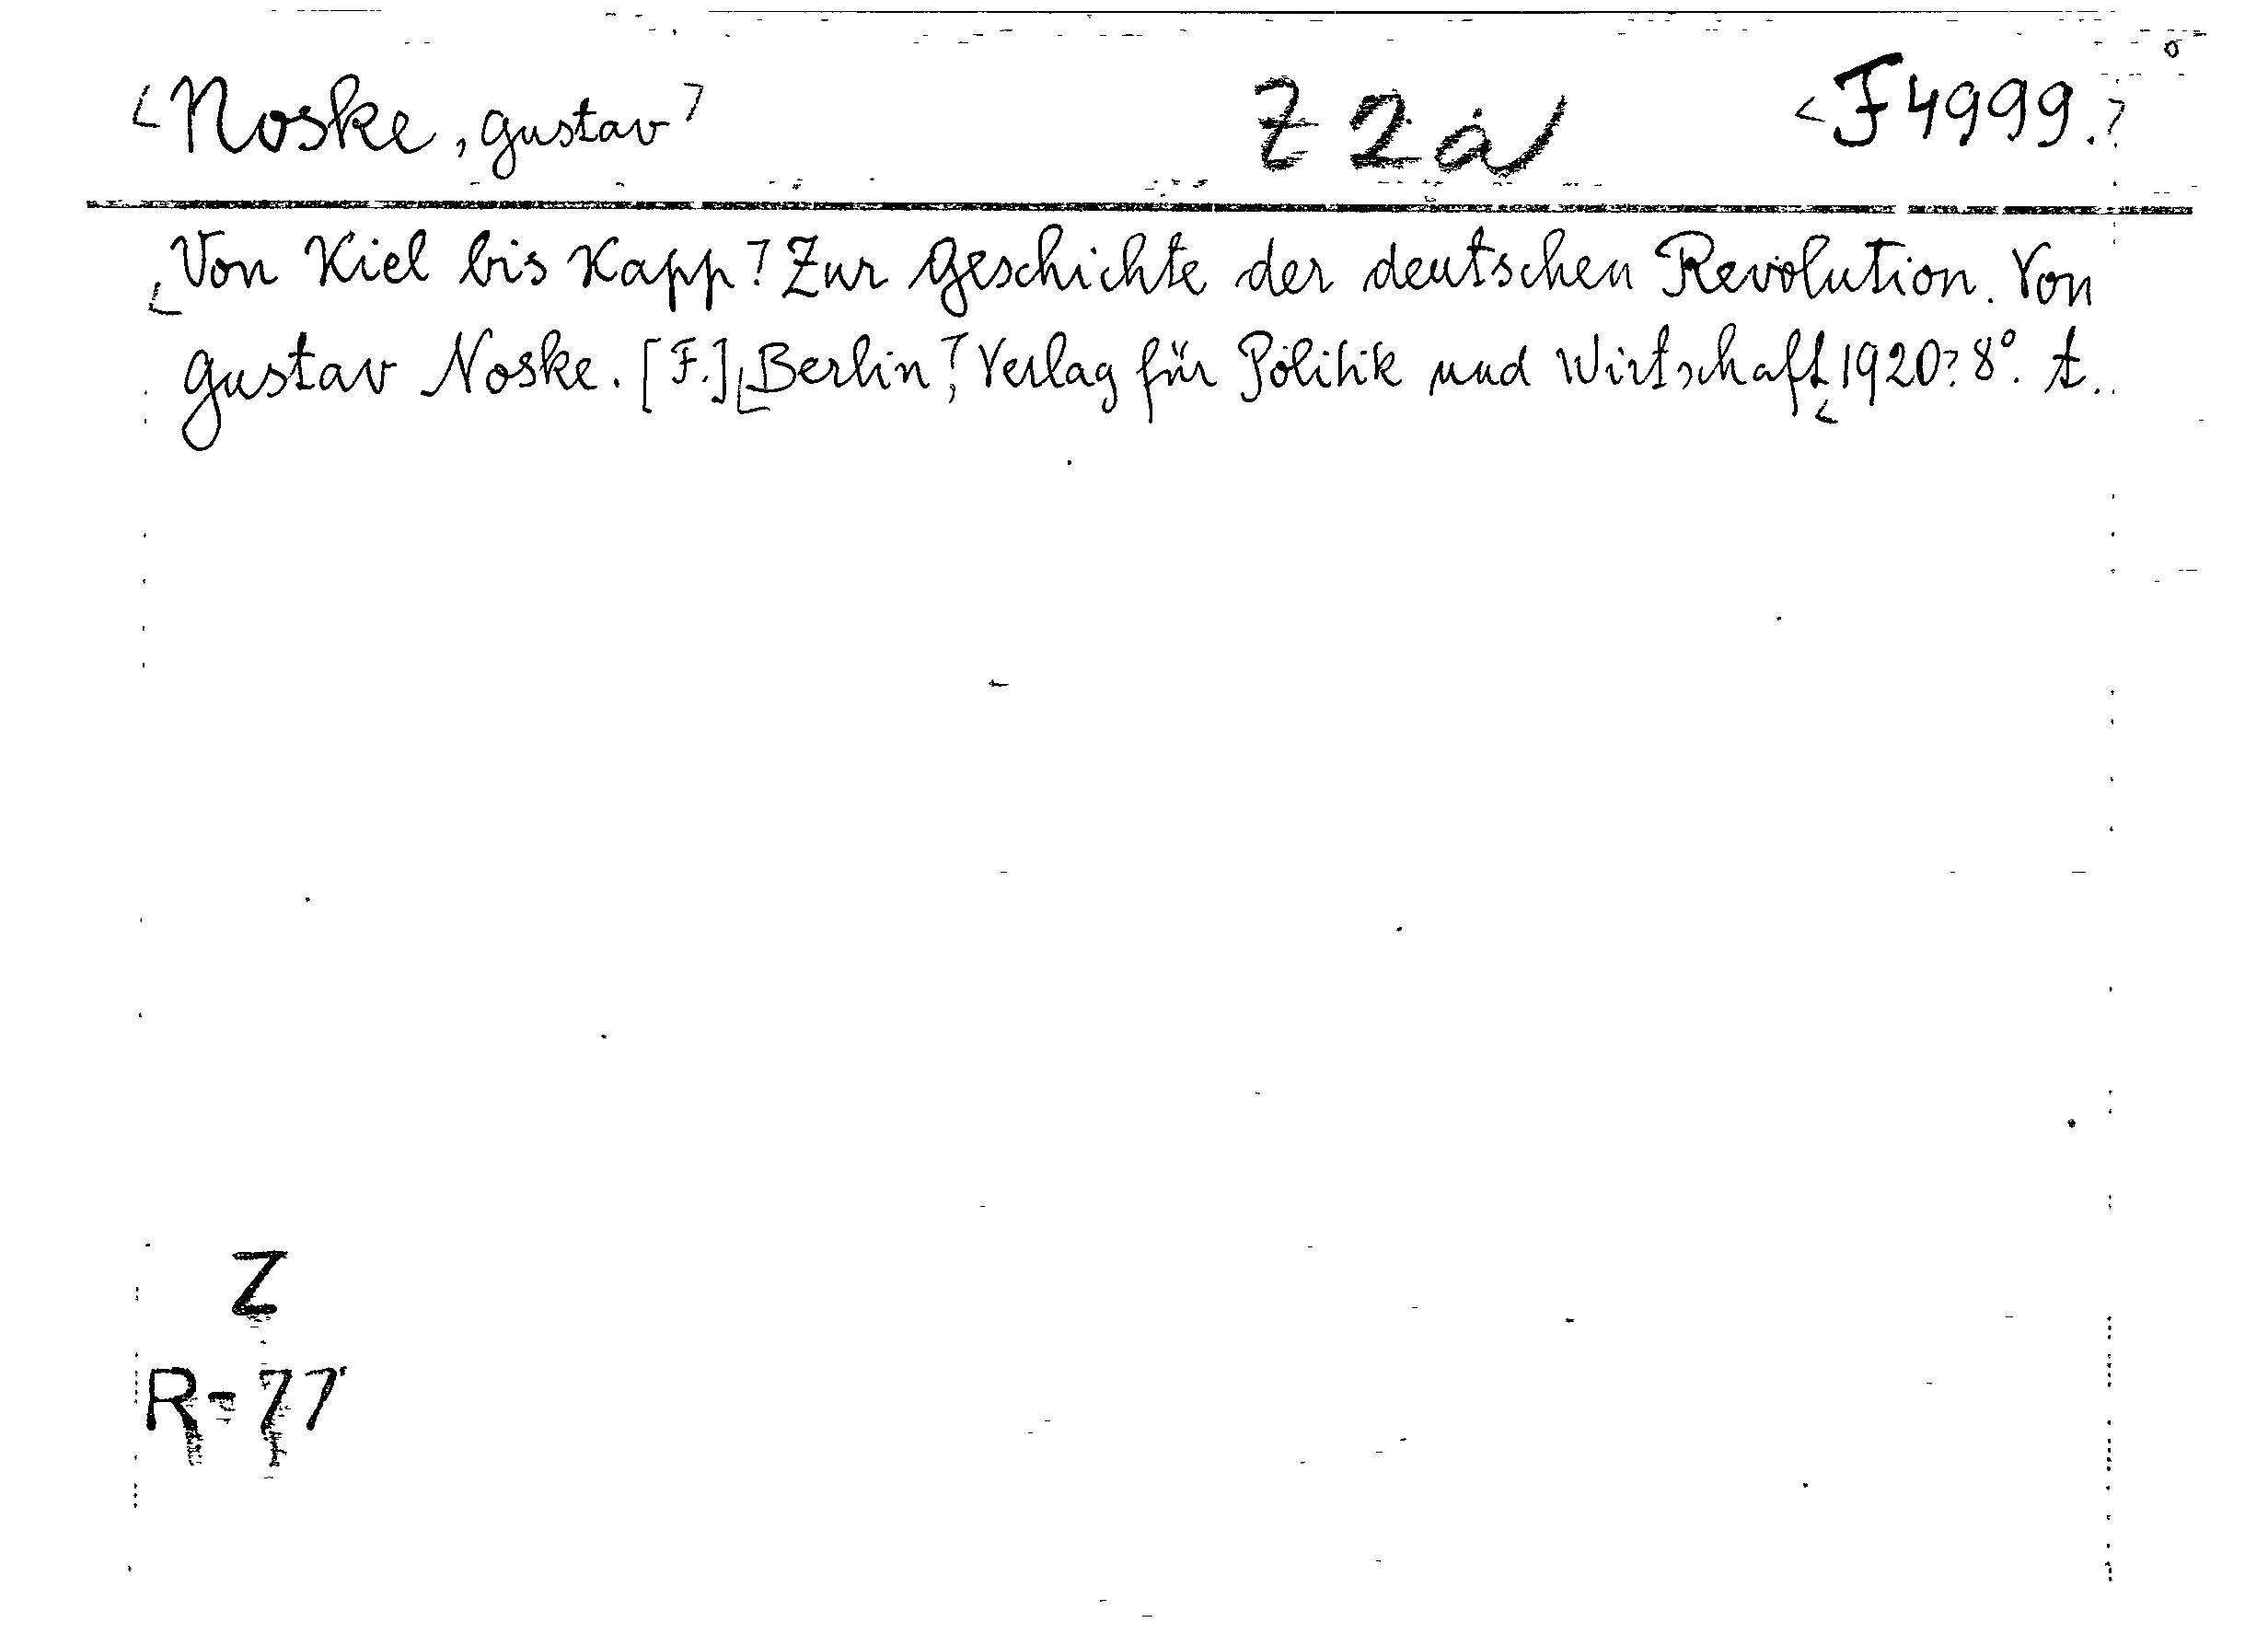 Noske, Gustav Z 2 a F 4999.
Von Kiel bis Kapp? Zur Geschichte der deutschen Revolution. Von
Gustav Noske. [F.] Berlin, Verlag für Politik und Wirtschaft 1920. 8°. t.
Z
R-77